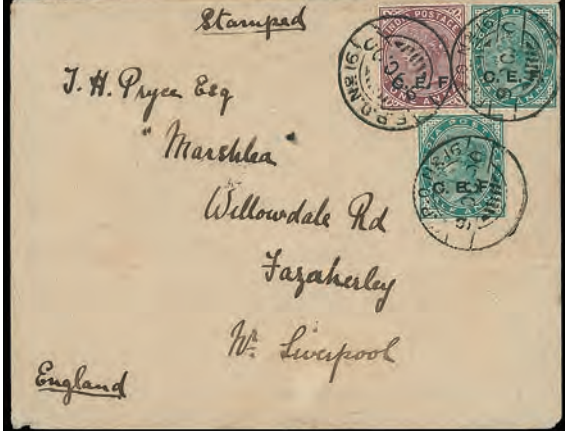 Stamped
INDIA POSTAGE
C. E. F.
ONE ANNA
C. E. F.
C. E. F.
F.P.O. No 16
T. H. Pryce Esq
"Marshlea"
Willowdale Rd
Fazakerley
Nr. Liverpool
England